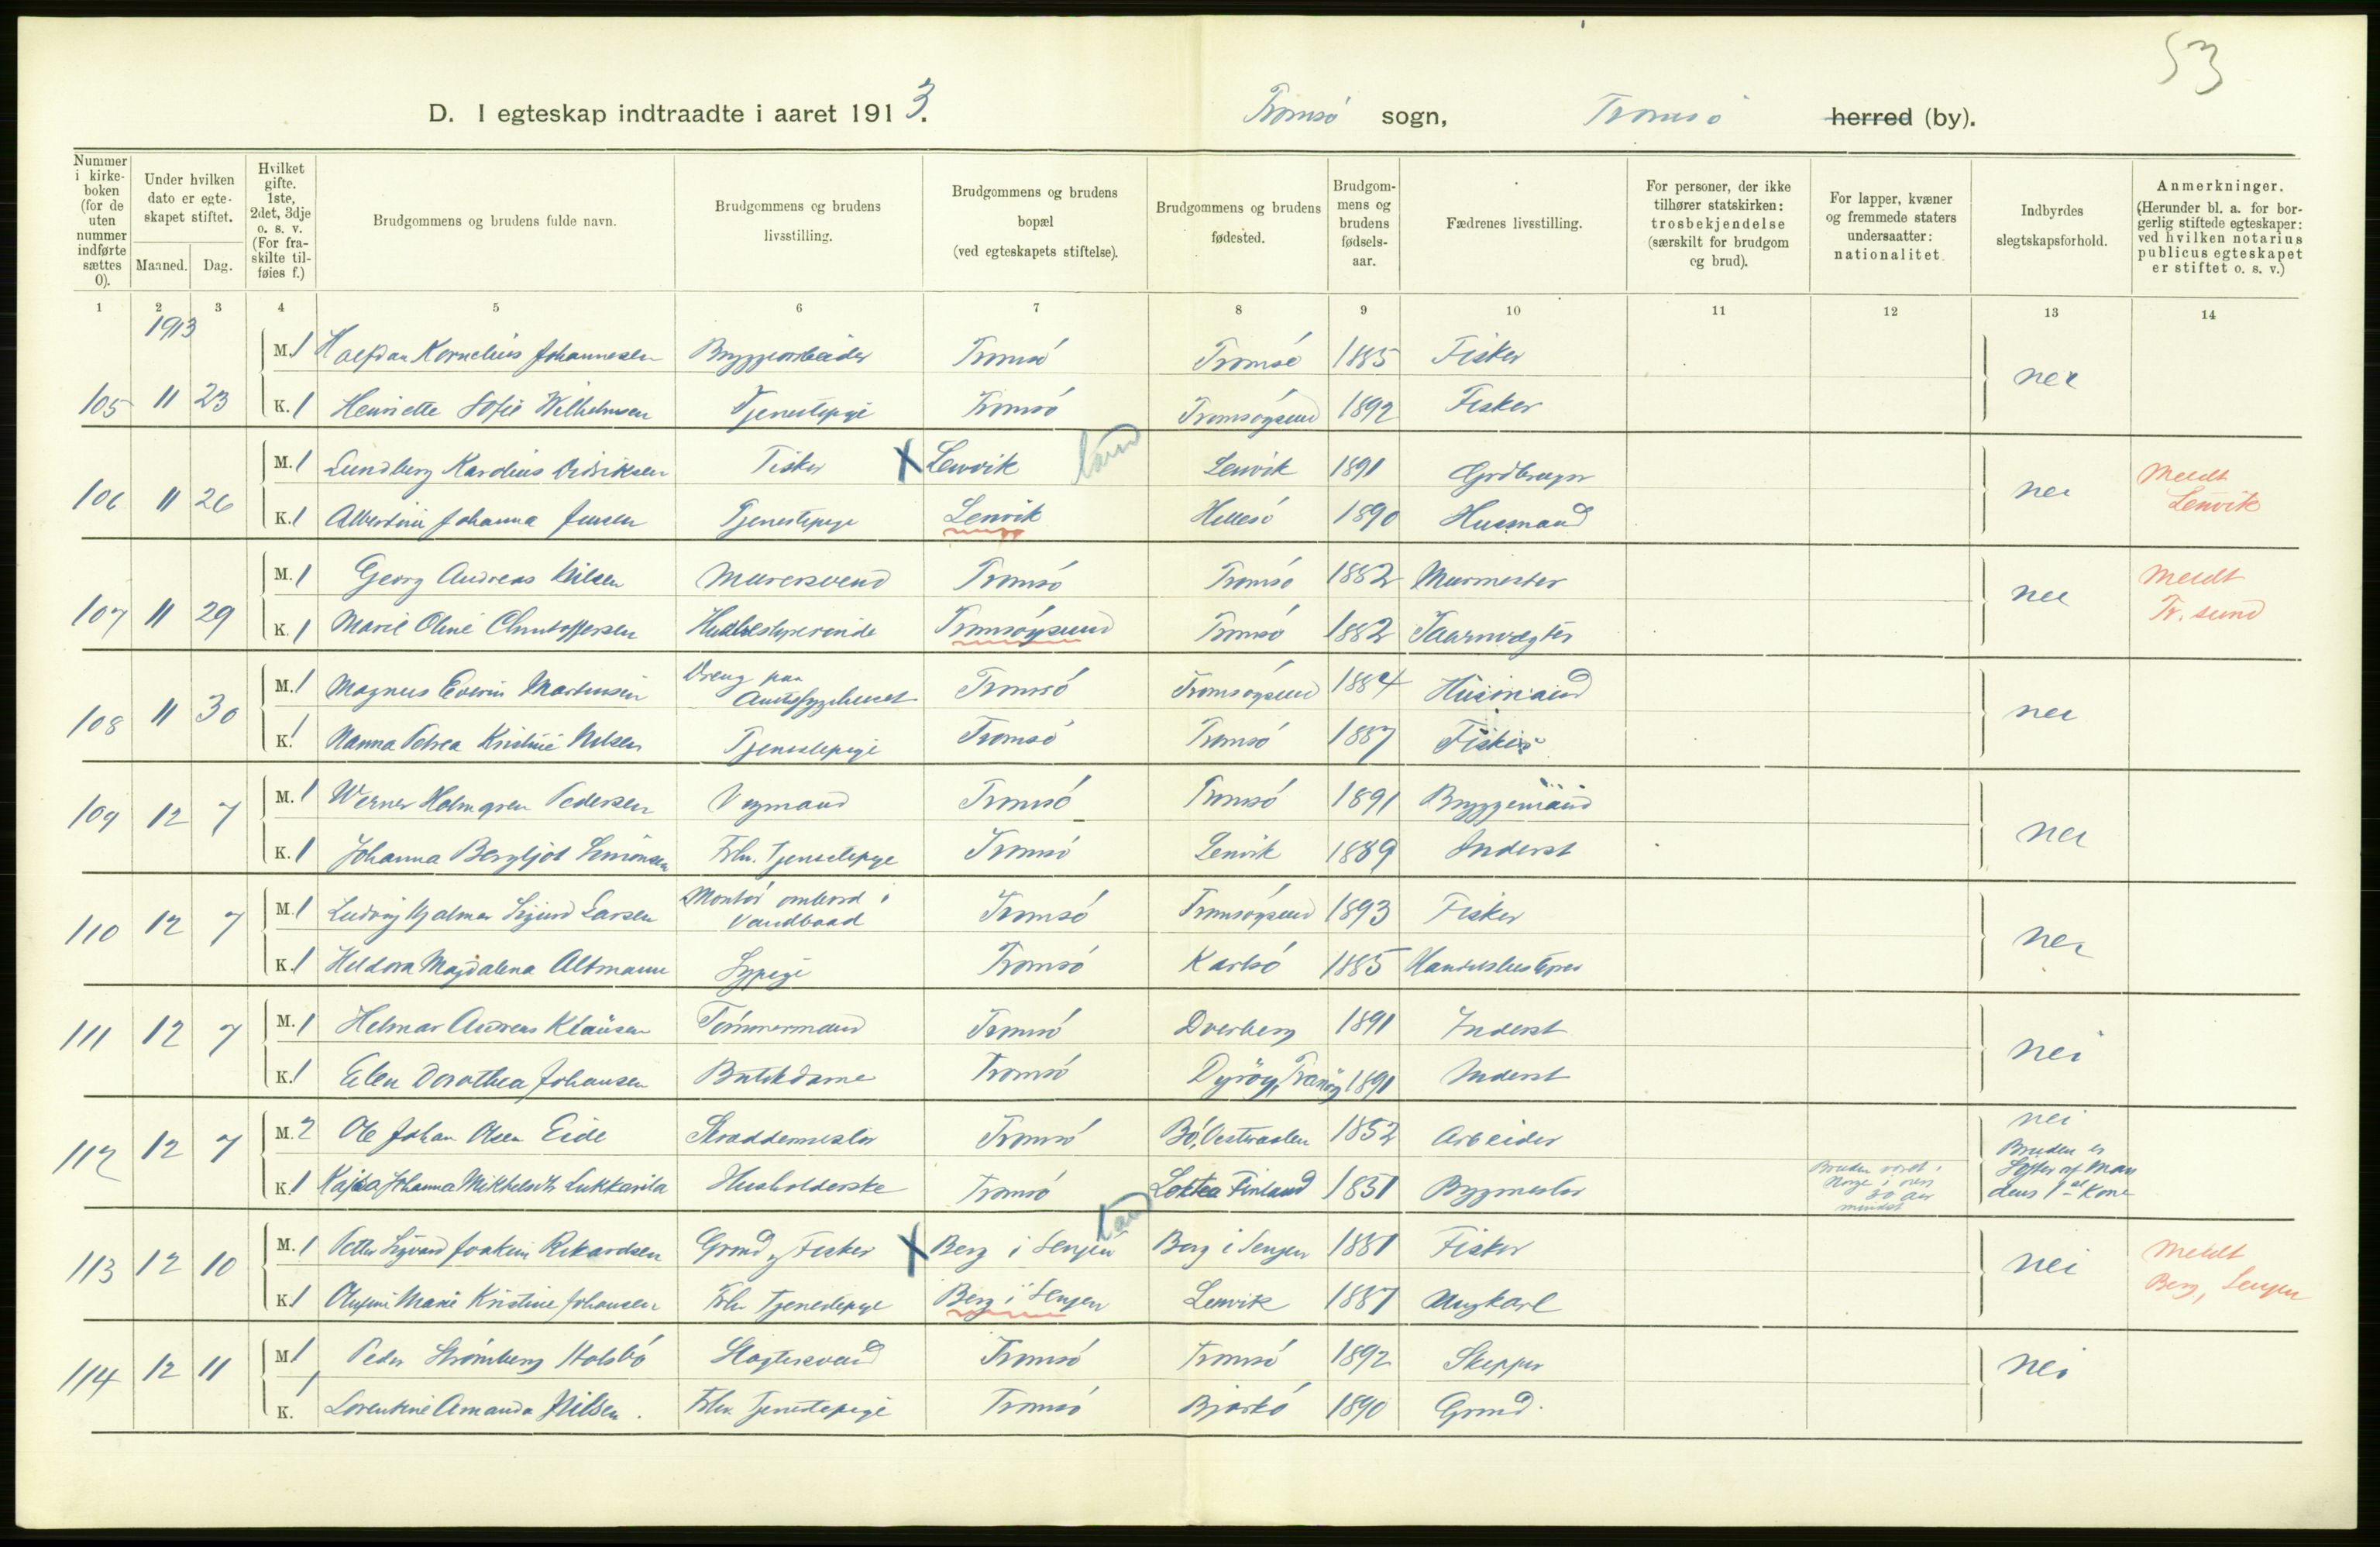 53
D. I egteskap indtraadte i aaret 1913. Tromsö sogn, Tromsö herred (by).
Nummer i kirkeboken (for de uten nummer indførte sættes 0).
Under hvilken dato er egteskapet stiftet.
Maaned. Dag.
Hvilket gifte. 1ste, 2det, 3dje o. s. v. (For fraskilte tilføies f.)
Brudgommens og brudens fulde navn.
Brudgommens og brudens livsstilling.
Brudgommens og brudens bopæl (ved egteskapets stiftelse).
Brudgommens og brudens fødested.
Brudgommens og brudens fødselsaar.
Fædrenes livsstilling.
For personer, der ikke tilhører statskirken: trosbekjendelse (særskilt for brudgom og brud).
For lapper, kvæner og fremmede staters undersaatter: nationalitet.
Indbyrdes slegtskapsforhold.
Anmerkninger. (Herunder bl. a. for borgerlig stiftede egteskaper: ved hvilken notarius publicus egteskapet er stiftet o. s. v.)
1 2 3 4 5 6 7 8 9 10 11 12 13 14
1913
M. 1 Halfdan Kornelius Johannesen Bryggearbeider Tromsö Tromsö 1885 Fisker
105 11 23 K. 1 Henriette Sofie Wilhelmsen Tjenestepige Tromsö Tromsöysund 1892 Fisker nei
M. 1 Lundberg Kardius Didriksen Fisker X Lenvik land Lenvik 1891 Grdbruger
106 11 26 K. 1 Albertine Johanna Jensen Tjenestepige Lenvik Hillesö 1890 Husmand nei Meldt Lenvik
M. 1 Georg Andreas Nilsen Murersvend Tromsö Tromsö 1882 Murmester
107 11 29 K. 1 Marie Oline Christoffersen Tromsöysund Tromsö 1882 Taarnvægter nei Meldt Tr. sund
M. 1 Magnus Everin Martinsen Dreng paa Amtssygehuset Tromsö Tromsöysund 1884 Husmand
108 11 30 K. 1 Nanna Petrea Kristine Nilsen Tjenestepige Tromsö Tromsö 1887 Fisker nei
M. 1 Werner Holmgren Pedersen Vognmand Tromsö Tromsö 1891 Bryggemand
109 12 7 K. 1 Johanna Bergljot Simonsen Frhv. Tjenestepige Tromsö Lenvik 1889 Inderst nei
M. 1 Ludvig Hjalmar Sigurd Larsen Montör ombord i Vandbaad Tromsö Tromsöysund 1893 Fisker
110 12 7 K. 1 Heldora Magdalena Altmann Sypige Tromsö Karlsö 1885 nei
M. 1 Helmar Andreas Klausen Tömmermand Tromsö Dverberg 1891 Inderst
111 12 7 K. 1 Elen Dorothea Johansen Butikdame Tromsö Dyröy, Tranöy 1891 Inderst nei
M. 2 Ole Johan Olsen Eide Skraddermester Tromsö Bö, Vesteraalen 1852 Arbeider nei
112 12 7 K. 1 Kajsa Johanna Mikkelsdtr Lukkarila Husholderske Tromsö Loktea Finland 1851 Bygmester
Bruden været i Norge i over 30 aar mindst
Bruden er Søster af Mandens 1ste Kone
M. 1 Petter Sigvard Joakim Rikardsen Grmd og Fisker X Berg i Senjen Land Berg i Senjen 1881 Fisker
113 12 10 K. 1 Olufine Marie Kristine Johansen Frhv Tjenestepige Berg i Senjen Lenvik 1887 Ungkarl nei Meldt Berg, Senjen
M. 1 Peder Strömberg Holsbö Slagtersvend Tromsö Tromsö 1892 Skipper
114 12 11 K. 1 Lorentine Amanda Nilsen. Frhv. Tjenestepige Tromsö Bjarkö 1890 Grmd. nei